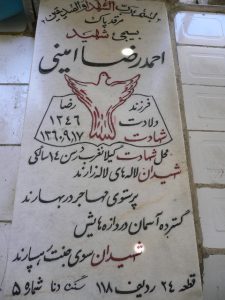 مرقد پاک
بسیجی شهید
احمد رضا امینی
فرزند رضا
ولادت ۱۳۴۶
شهادت ۱۳۶۰.۹.۱۷
محل شهادت گیلانغرب در سن ۱۴ سالگی
شهیدان لاله های لاله زارند
پرستوی مهاجر در بهارند
گسترده آسمان دروازه هایش
شهیدان سوی جنت رهسپارند
قطعه ۲۴ ردیف ۱۱۸ شماره ۵